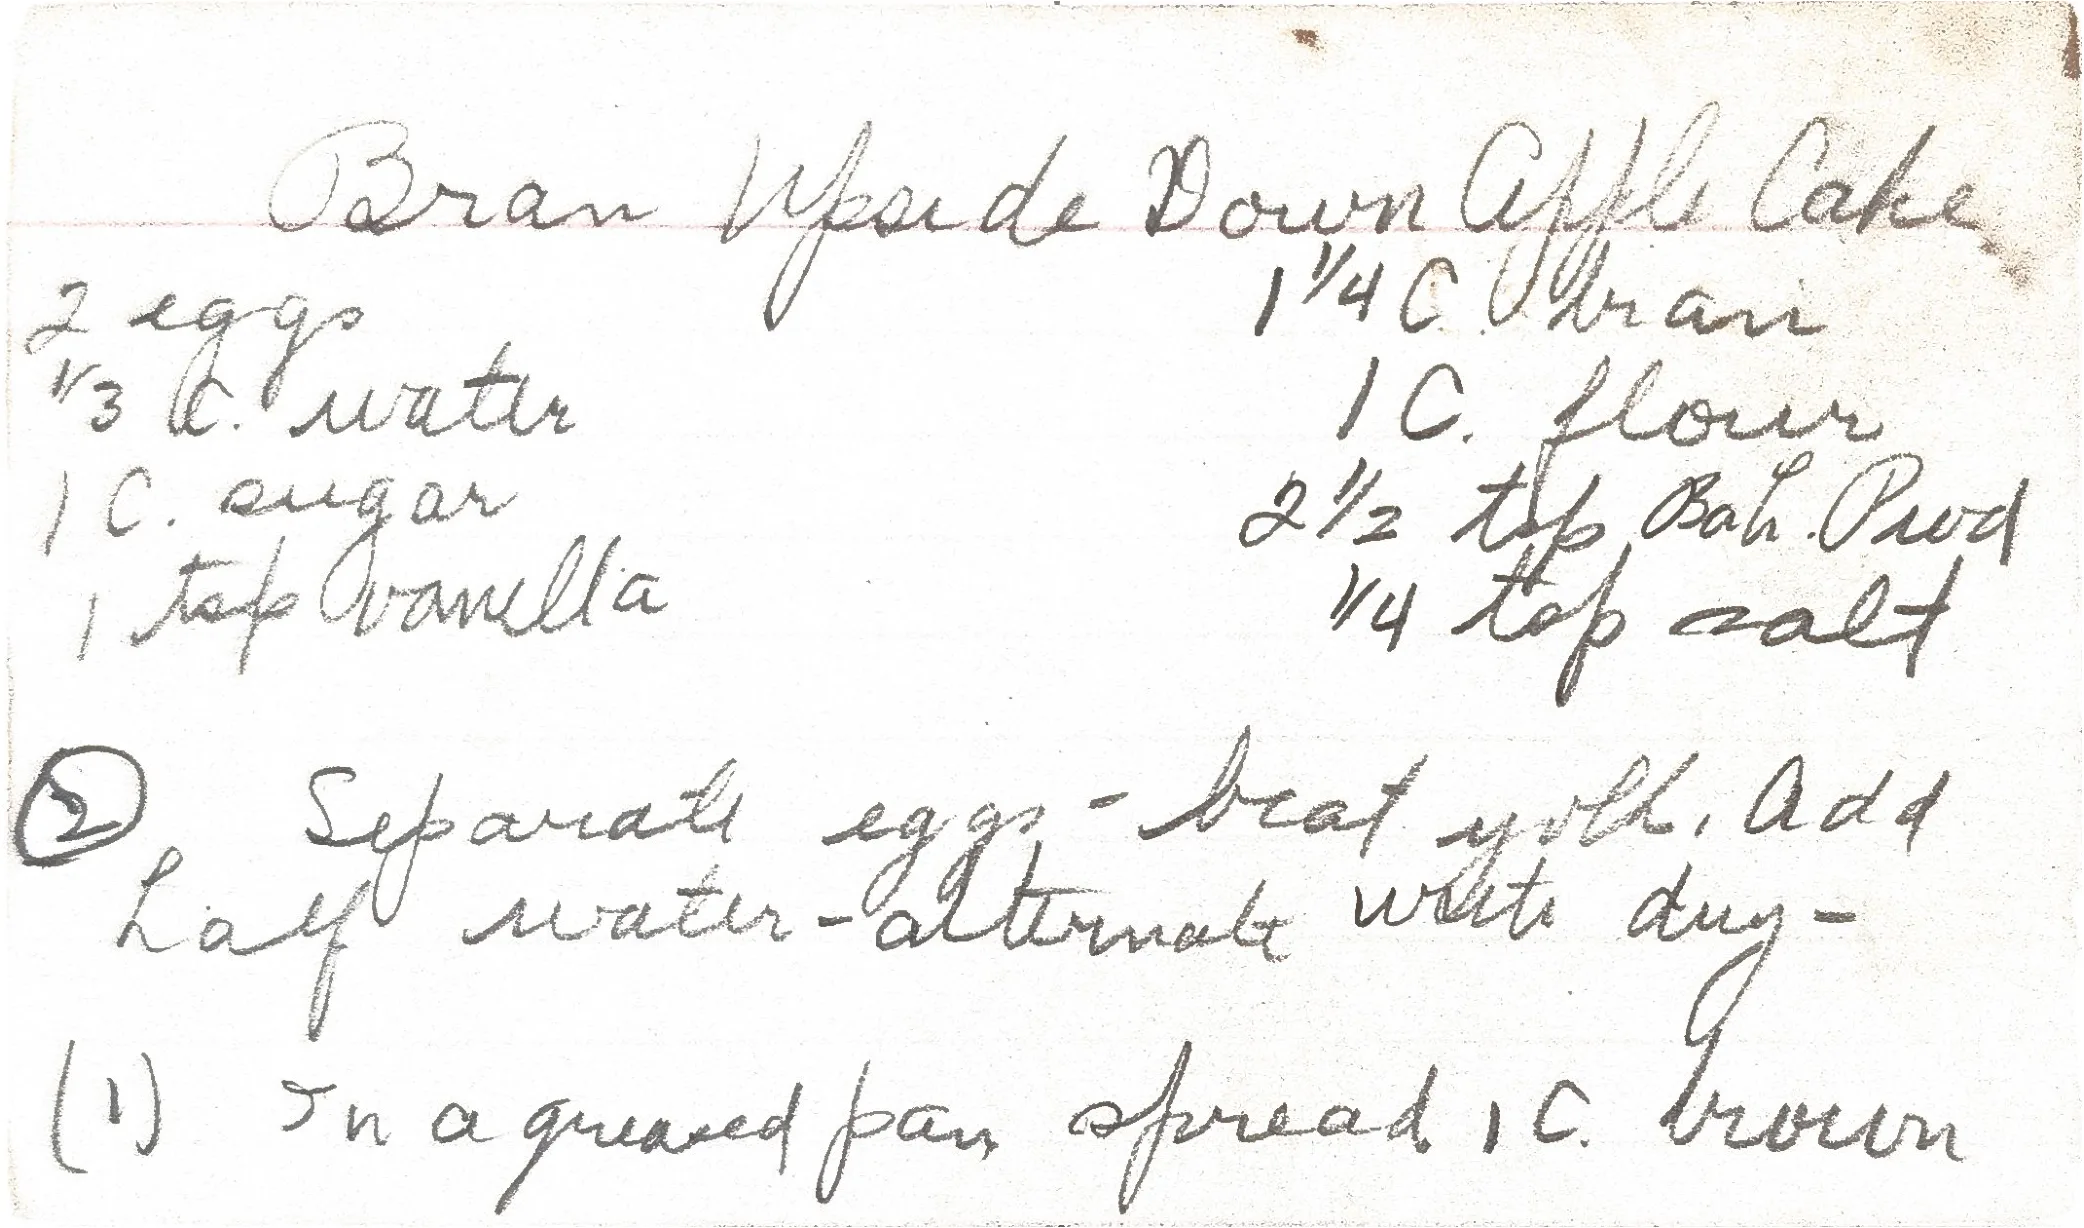 Bran Upside Down Apple Cake
2 eggs
1/3 C. water
1 C. sugar
1 tsp vanilla
1 1/4 C. bran
1 C. flour
2 1/2 tsp Bak. Pwd
1/4 tsp salt
② Separate eggs - beat yolk. Add
half water - alternate with dry -
(1) In a greased pan spread 1 C. brown